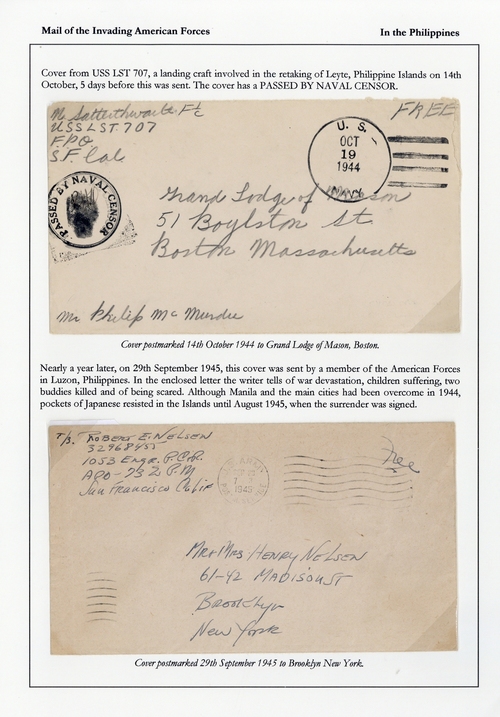 Mail of the Invading American Forces
In the Philippines
Cover from USS LST 707, a landing craft involved in the retaking of Leyte, Philippine Islands on 14th
October, 5 days before this was sent. The cover has a PASSED BY NAVAL CENSOR.
N. Satterthwaite F 1/c
USS LST 707
F.P.O
S.F. Cal.
FREE
U. S.
OCT
19
1944
NAVY
PASSED BY NAVAL CENSOR
Grand Lodge of Mason
51 Boylston St.
Boston Massachusetts
Mr Philip McMurdie
Cover postmarked 14th October 1944 to Grand Lodge of Mason, Boston.
Nearly a year later, on 29th September 1945, this cover was sent by a member of the American Forces
in Luzon, Philippines. In the enclosed letter the writer tells of war devastation, children suffering, two
buddies killed and of being scared. Although Manila and the main cities had been overcome in 1944,
pockets of Japanese resisted in the Islands until August 1945, when the surrender was signed.
T/5. Robert E. Nelsen
32968455
1053 Engr. P.C.R.
APO - 73 % P.M
San Francisco Calif
Free
1945
Mr & Mrs Henry Nelsen
61-42 Madison St
Brooklyn
New York
Cover postmarked 29th September 1945 to Brooklyn New York.